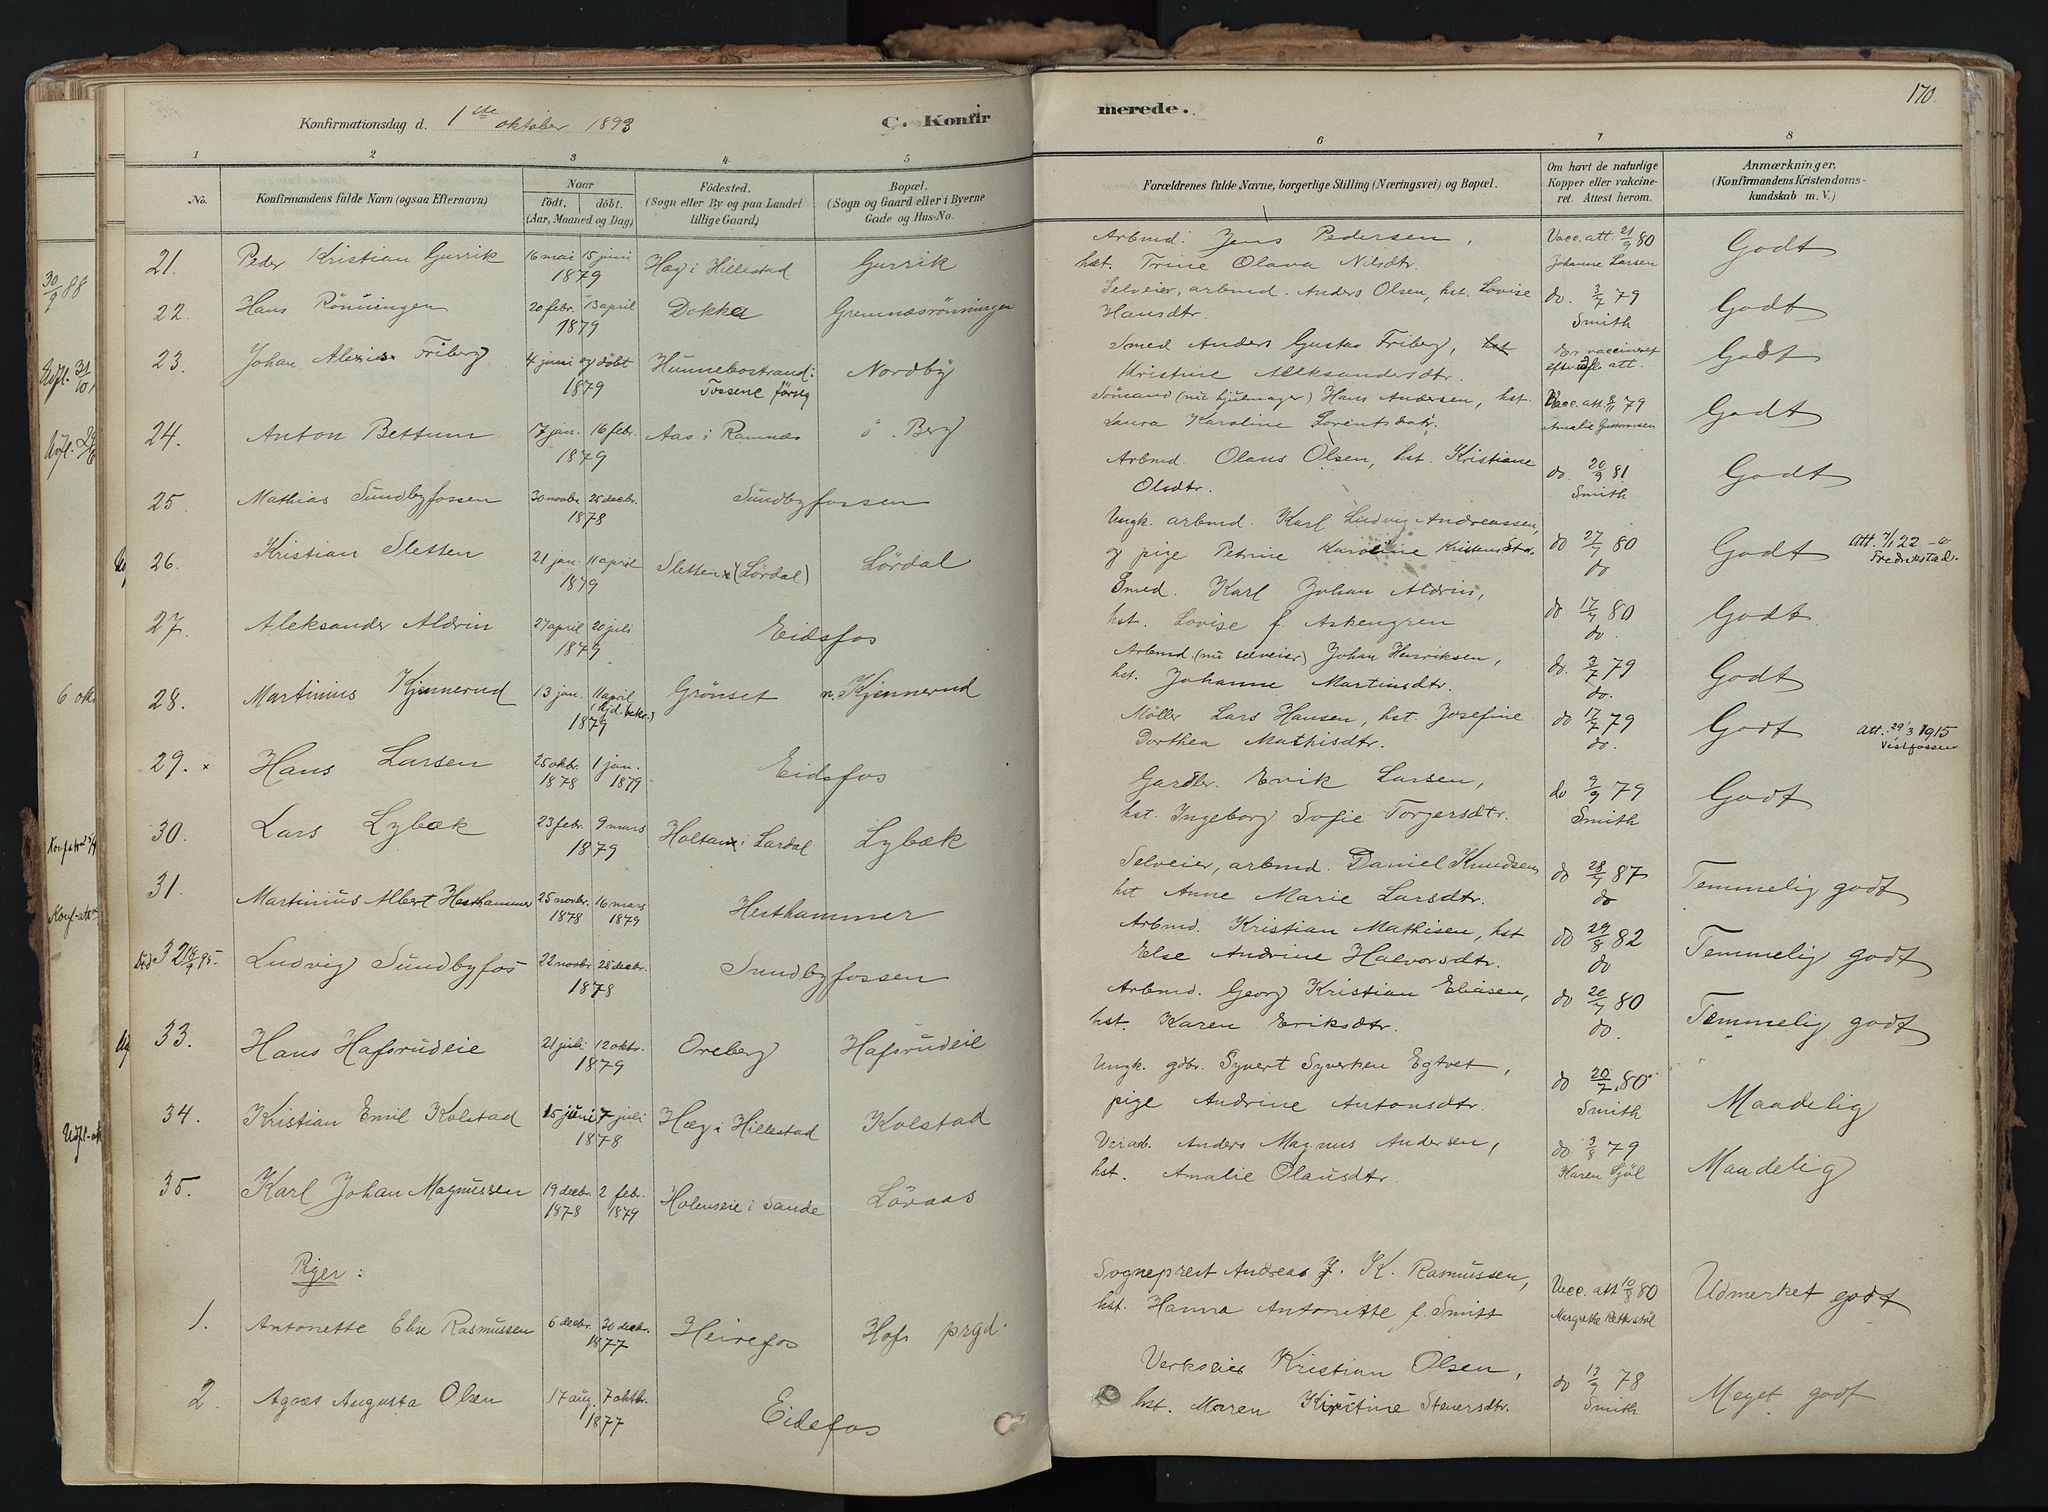 170.
Konfirmationsdag d. 1ste oktober 1893
C. Konfirmerede.
1 2 3 4 5 6 7 8
No.
Konfirmandens fulde Navn (ogsaa Efternavn)
Naar
født. døbt.
(Aar, Maaned og Dag)
Fødested.
(Sogn eller By og paa Landet
tillige Gaard)
Bopæl.
(Sogn og Gaard eller i Byerne
Gade og Hus-No.
Forældrenes fulde Navne, borgerlige Stilling (Næringsvei) og Bopæl.
Om havt de naturlige
Kopper eller vakcine-
ret. Attest herom.
Anmærkninger.
(Konfirmandens Kristendoms-
kundskab m. V.)
21. Peder Kristian Gurrik 16 mai 15 juni 1879 Hæg i Hillestad Gurrik
Arbmd. Jens Pedersen, Vacc. att. 21/9 80 Godt
hst. Trine Olava Nilsdtr. Johanne Larsen
22. Hans Rönningen 20 febr. 13 april 1879 Dokka Gremnæsrönningen
Selveier, arbmd. Anders Olsen, hst. Lovise do. 3/7 79 Godt
Hansdtr. Smith
23. Johan Alexis Friberg 4 juni og döbt 1879 Hunnebostrand: Tossene forsg Nordby
Smed Anders Gustav Friberg, hst Er vaccineret Godt
Kristine Aleksandersdtr. att.
24. Anton Bettum 17 jan. 16 febr. 1879 Aas i Ramnes ö. Berg
Sömand (nu hjulmager) Hans Andersen, hst. Vacc. att. 79 Godt
Laura Karoline Lorentsdatr. Amalie
25. Mathias Sundbyfossen 30 novbr. 25 decbr. 1878 Sundbyfossen
Arbmd. Olaus Olsen, hst. Kristiane do 20/9 81 Godt
Olsdtr. Smith
26. Kristian Sletten 21 jan. 11 april 1879 Sletten (Lördal) Lördal
Ungk. arbmd. Karl Ludvig Andreassen, do 27/7 80 Godt Att. 7/1 22
og pige Petrine Karoline Kristensdtr. do Fredrikstad.
27. Aleksander Aldrin 27 april 20 juli 1879 Eidsfos
Smed. Karl Johan Aldrin, do 17/7 80 Godt
hst. Lovise f. Askengren do.
28. Martinius Kjennerud 13 jan. 11 april (hjd. bekr.) 1879 Grönset n. Kjennerud
Arbmd. (nu selveier) Johan Henriksen, do. 3/7 79 Godt
hst. Johanne Martinsdtr. do.
29. × Hans Larsen 25 okbr. 1878 1 jan. 1879 Eidsfos
Möller Lars Hansen, hst. Josefine do 17/7 79 Godt att. 29/3 1915
Dorthea Mathisdtr. do. Vestfossen
30. Lars Lybæk 23 febr. 9 mars 1879 Holtan i Lardal Lybæk
Gardbr. Erik Larsen, do 9/9 79 Godt
hst. Ingeborg Sofie Torgersdtr. Smith
31. Martinius Albert Hesthammer 25 novbr. 1878 16 mars 1879 Hesthammer
Selveier, arbmd. Daniel Knudsen do 28/7 87 Temmelig godt
hst Anne Marie Larsdtr. do
32 Död 18/9 95. Ludvig Sundbyfos 22 novbr. 25 decbr. 1878 Sundbyfossen
Arbmd. Kristian Mathisen, hst do 29/8 82 Temmelig godt
Else Andrine Halvorsdtr. do
33. Hans Hafsrudeie 21 juli 12 oktr. 1879 Oreberg Hafsrudeie
Arbmd. Georg Kristian Eliasen, do 20/7 80 Temmelig godt
hst. Karen Eriksdtr. do.
34. Kristian Emil Kolstad 15 juni 7 juli 1878 Hæg i Hillestad Kolstad
Ungk. gdbr. Syvert Syversen Egtvet, do 20/7 80 Maadelig
pige Andrine Antonsdtr. Smith
35. Karl Johan Magnussen 19 decbr. 1878 2 febr. 1879 Holenseie i Sande Lövaas
Anders Magnus Andersen, do 3/8 79 Maadelig
hst. Amalie Olausdtr. Karen Sjöl
Piger:
1. Antonette Else Rasmussen 6 decbr. 30 decbr. 1877 Heirefos Hofs prgd.
Sogneprest Andreas J. K. Rasmussen, Vacc. att 10/8 80 Udmerket godt
hst. Hanna Antonette f. Smitt Margrethe
2. Agnes Augusta Olsen 17 aug. 7 oktbr. 1877 Eidsfos
Verkseier Kristian Olsen, do 13/9 78 Meget godt
hst. Maren Kirstine Steversdtr. Smith
30/9 88
6 okt